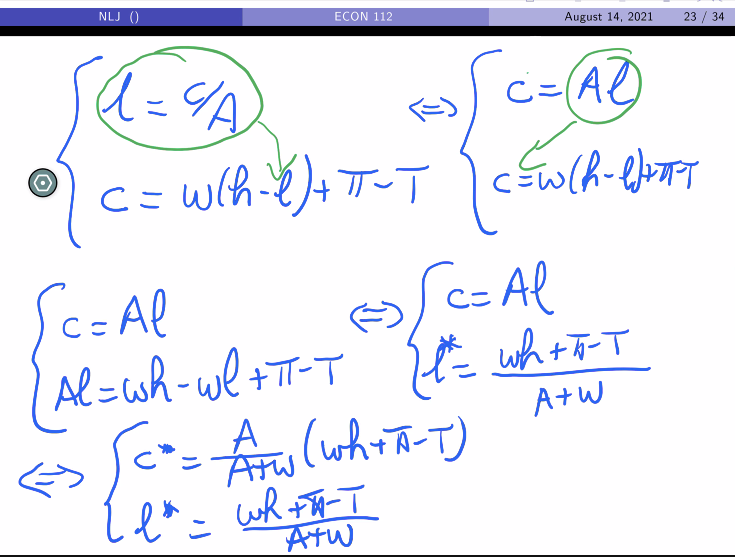 NLJ () ECON 112 August 14, 2021 23 / 34
l = c/A ⟺ c = Al
c = w(h-l) + π - T c = w(h-l) + π - T
c = Al ⟺ c = Al
Al = wh - wl + π - T l* = (wh + π - T)/(A + w)
⟺ c* = A/(A+w) (wh + π - T)
l* = (wh + π - T)/(A+w)